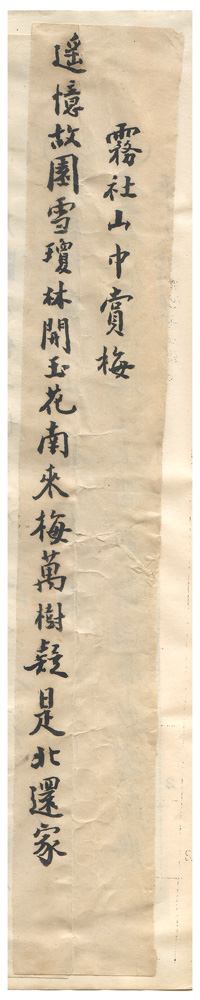 霧社山中賞梅
遥憶故園雪瓊林開玉花南來梅萬樹疑是北還家